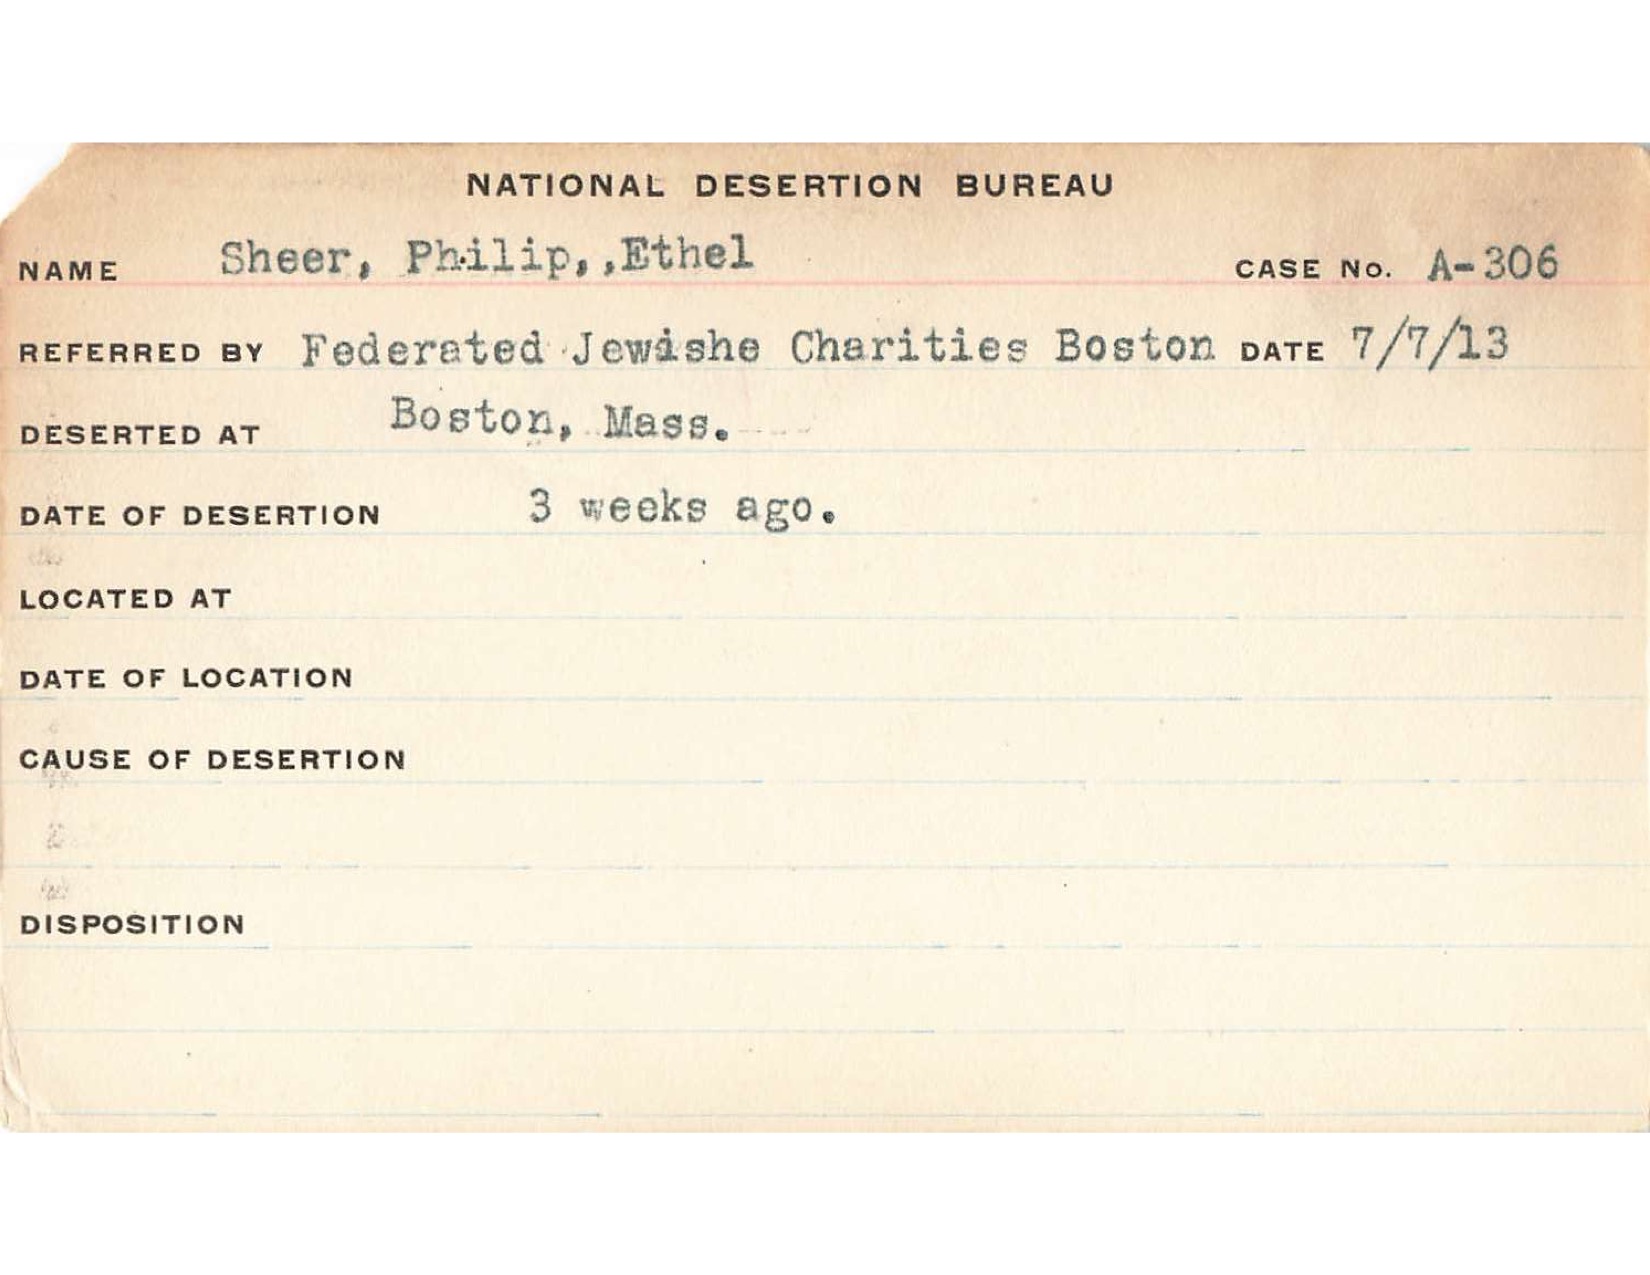 NATIONAL DESERTION BUREAU
NAME Sheer, Philip,,Ethel CASE No. A-306
REFERRED BY Federated Jewishe Charities Boston DATE 7/7/13
DESERTED AT Boston, Mass.
DATE OF DESERTION 3 weeks ago.
LOCATED AT
DATE OF LOCATION
CAUSE OF DESERTION
DISPOSITION